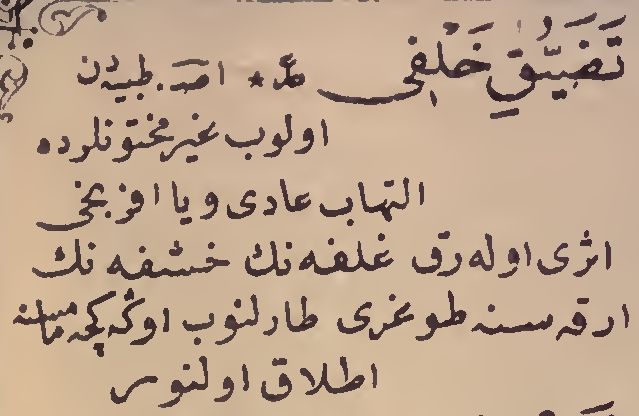 تَضَيُّقِ خَلْفِی ط * امـ. طبیه‌دن
اولوب غیر مختونلرده
التهاب عادی ویا افرنجی
اثری اوله‌رق غلفه نك حشفه نك
ارقه سنه طوغری طارلنوب اوڭه كچه‌مامسنه
اطلاق اولنور